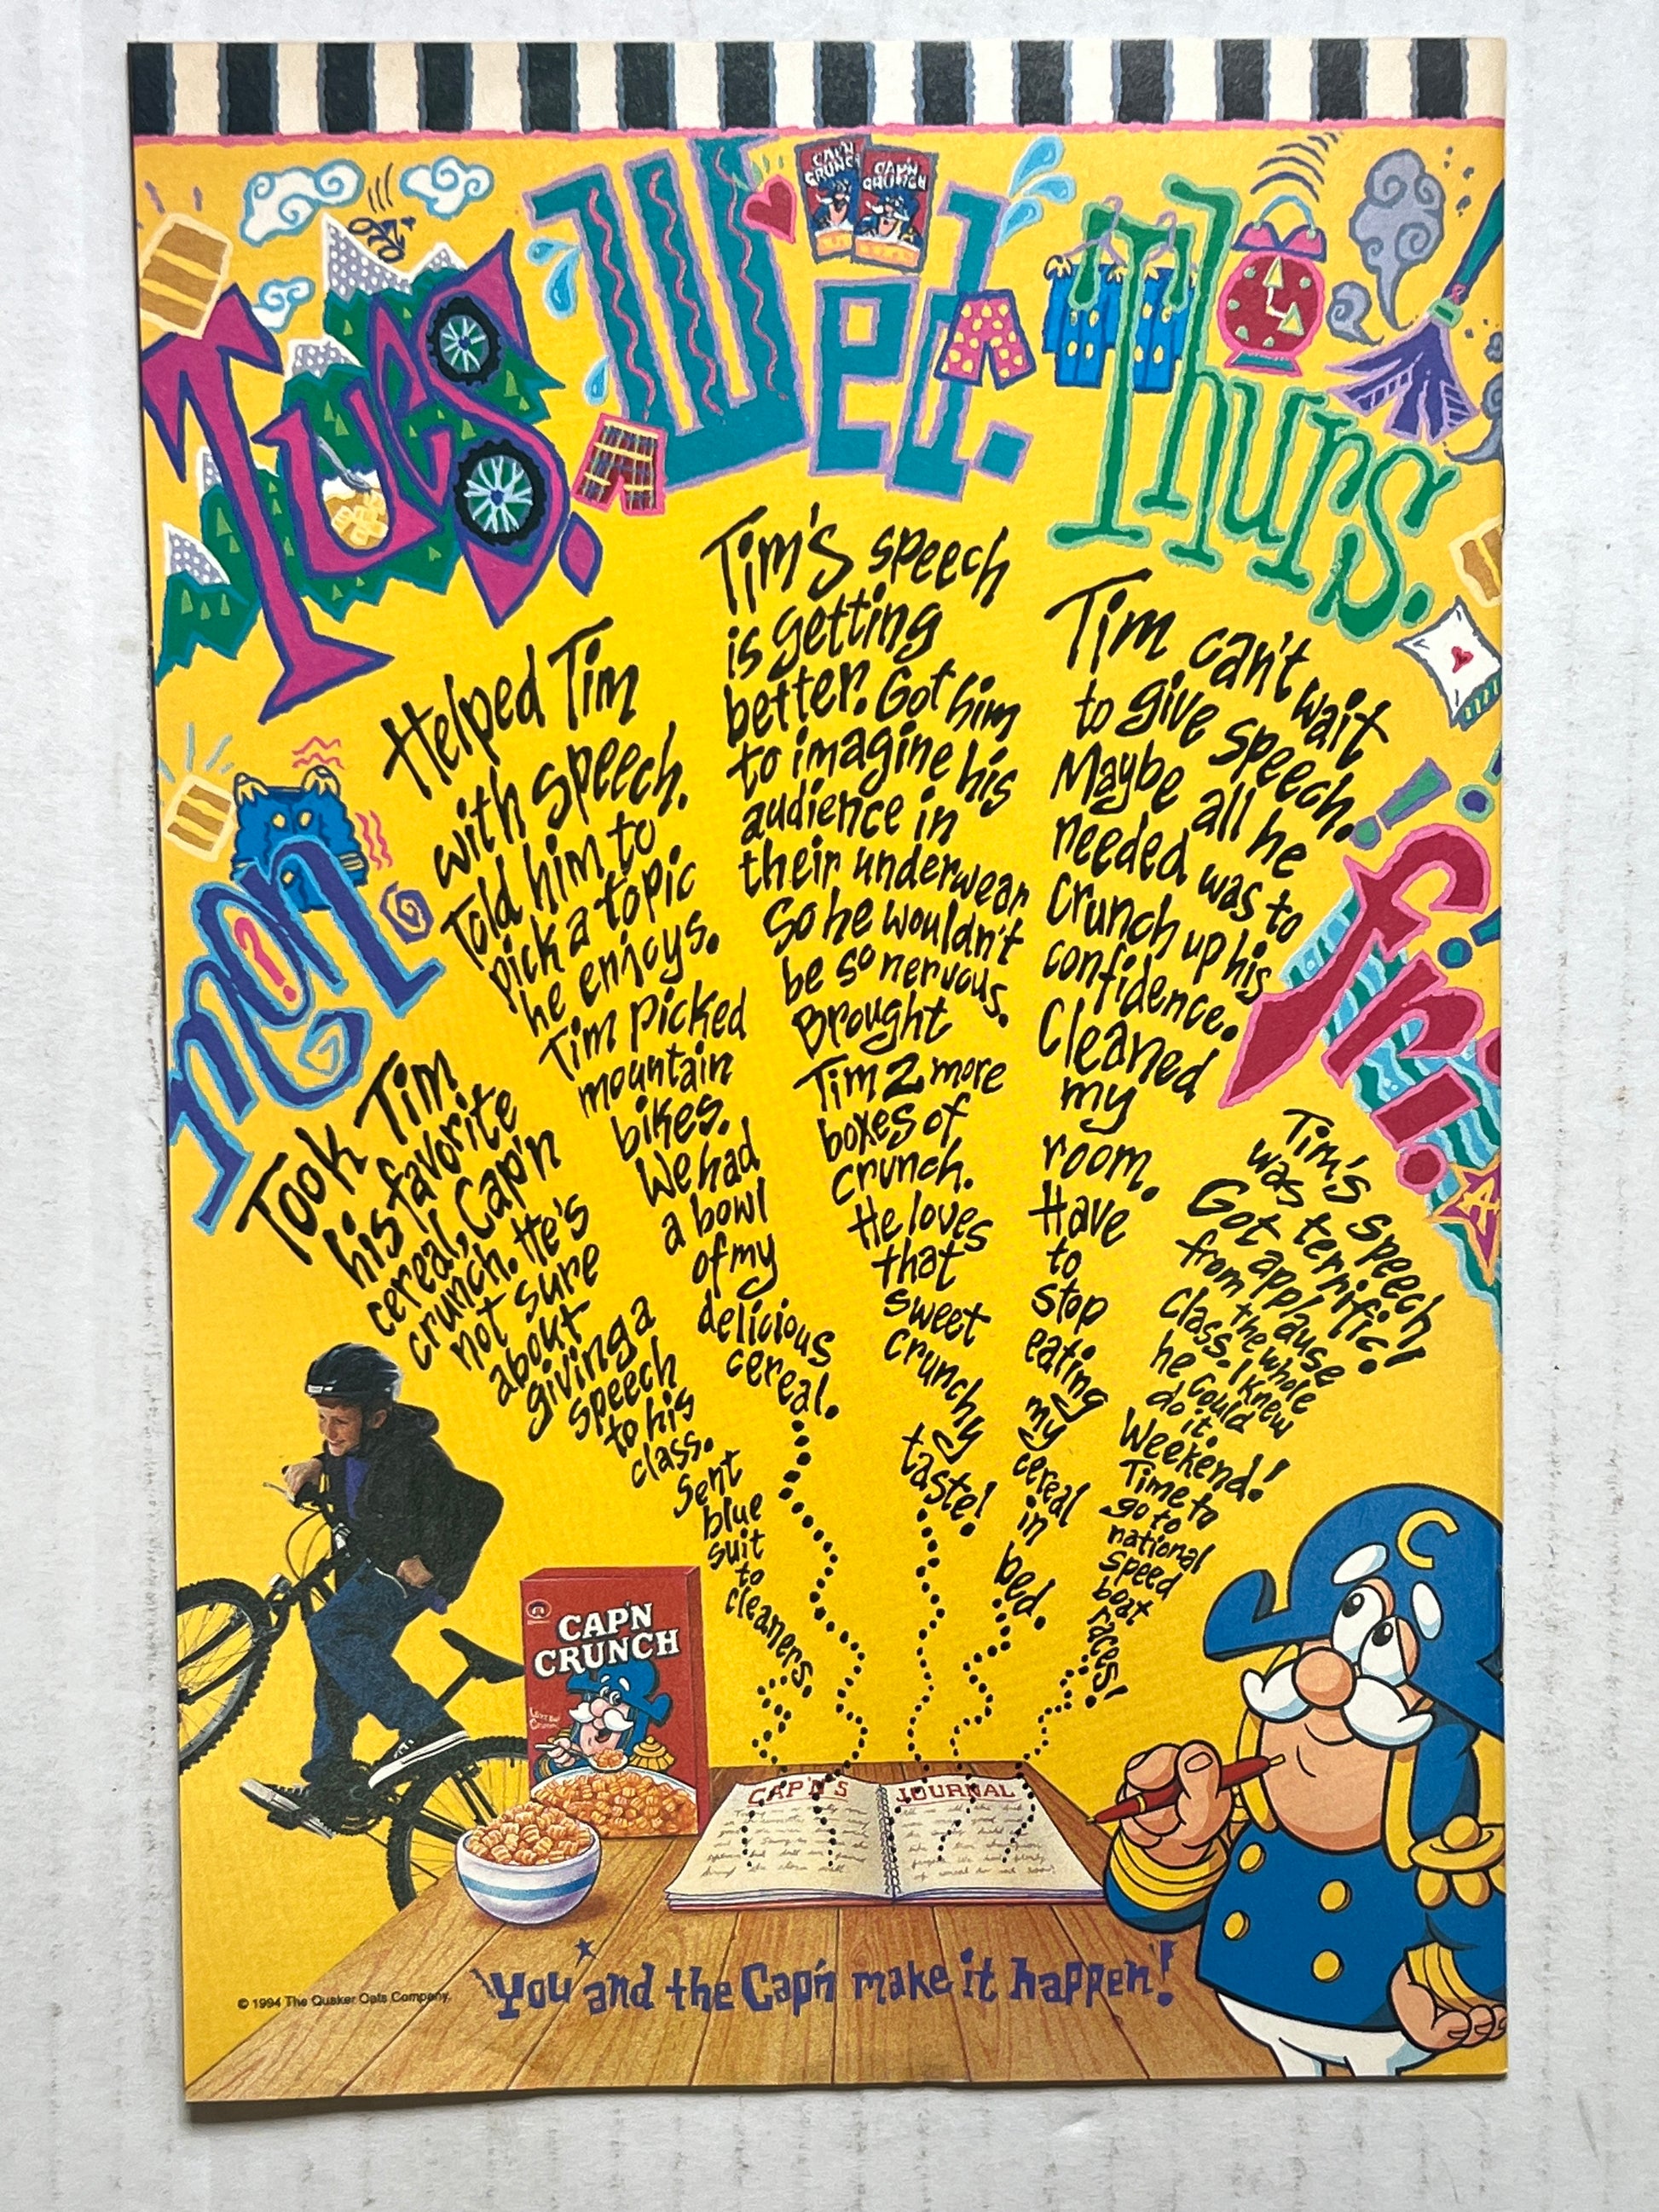 Mon
Took Tim
his favorite
cereal, Cap'n
crunch. He's
not sure
about
giving a
speech
to his
class.
Sent
blue
suit
to
cleaners.
Tues.
Helped Tim
with speech.
Told him to
pick a topic
he enjoys.
Tim picked
mountain
bikes.
We had
a bowl
of my
delicious
cereal.
Wed.
CAP'N
CRUNCH
CAP'N
CRUNCH
Tim's speech
is getting
better. Got him
to imagine his
audience in
their underwear
So he wouldn't
be so nervous.
Brought
Tim 2 more
boxes of
crunch.
He loves
that
sweet
crunchy
taste!
Thurs.
Tim can't wait
to give speech.
Maybe all he
needed was to
crunch up his
confidence.
Cleaned
my
room.
Have
to
stop
eating
my
cereal
in
bed.
Fri.
Tim's speech
was terrific!
Got applause
from the whole
class. I knew
he could
do it.
Weekend!
Time to
go to
national
speed
boat
races!
C
CAP'N
CRUNCH
CAP'N'S JOURNAL
You and the Cap'n make it happen!
© 1994 The Quaker Oats Company.